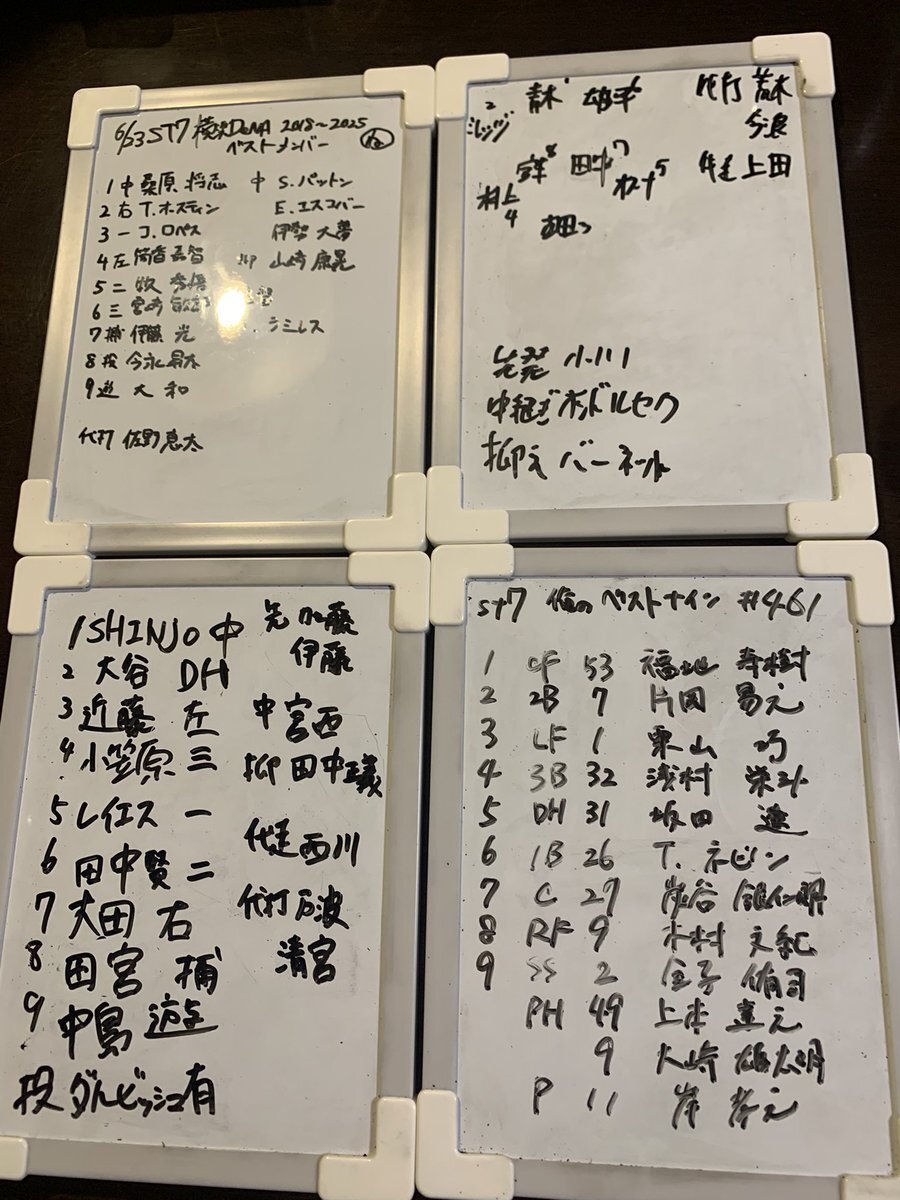 6/23 ST7 横浜DeNA 2018〜2025
ベストメンバー
1 中 桑原 将志
2 右 T.オースティン
3 一 J.ロペス
4 左 筒香嘉智
5 二 牧 秀悟
6 三 宮﨑 敏郎
7 捕 伊藤 光
8 投 今永昇太
9 遊 大和
代打 佐野恵太
中 S.パットン
E.エスコバー
伊勢 大夢
抑 山﨑 康晃
ラミレス
2 青木 雄平
ミレッジ
8 7
田中
オーナ 5
村上
4
代打 青木
今浪
代走 上田
先発 小川
中継ぎ オンドルセク
抑え バーネット
1 SHINJO 中
2 大谷 DH
3 近藤 左
4 小笠原 三
5 レイエス 一
6 田中賢 二
7 大田 右
8 田宮 捕
9 中島 遊
投 ダルビッシュ有
先 加藤
伊藤
中 宮西
抑 田中正義
代走 西川
代打 万波
清宮
ST7 俺のベストナイン #461
1 CF 53 福地 寿樹
2 2B 7 片岡 易之
3 LF 1 栗山 巧
4 3B 32 浅村 栄斗
5 DH 31 坂田 遼
6 1B 26 T. ネビン
7 C 27 炭谷 銀仁朗
8 RF 9 木村 文紀
9 SS 2 金子 侑司
PH 49 上本 達之
9 大崎 雄太朗
P 11 岸 孝之